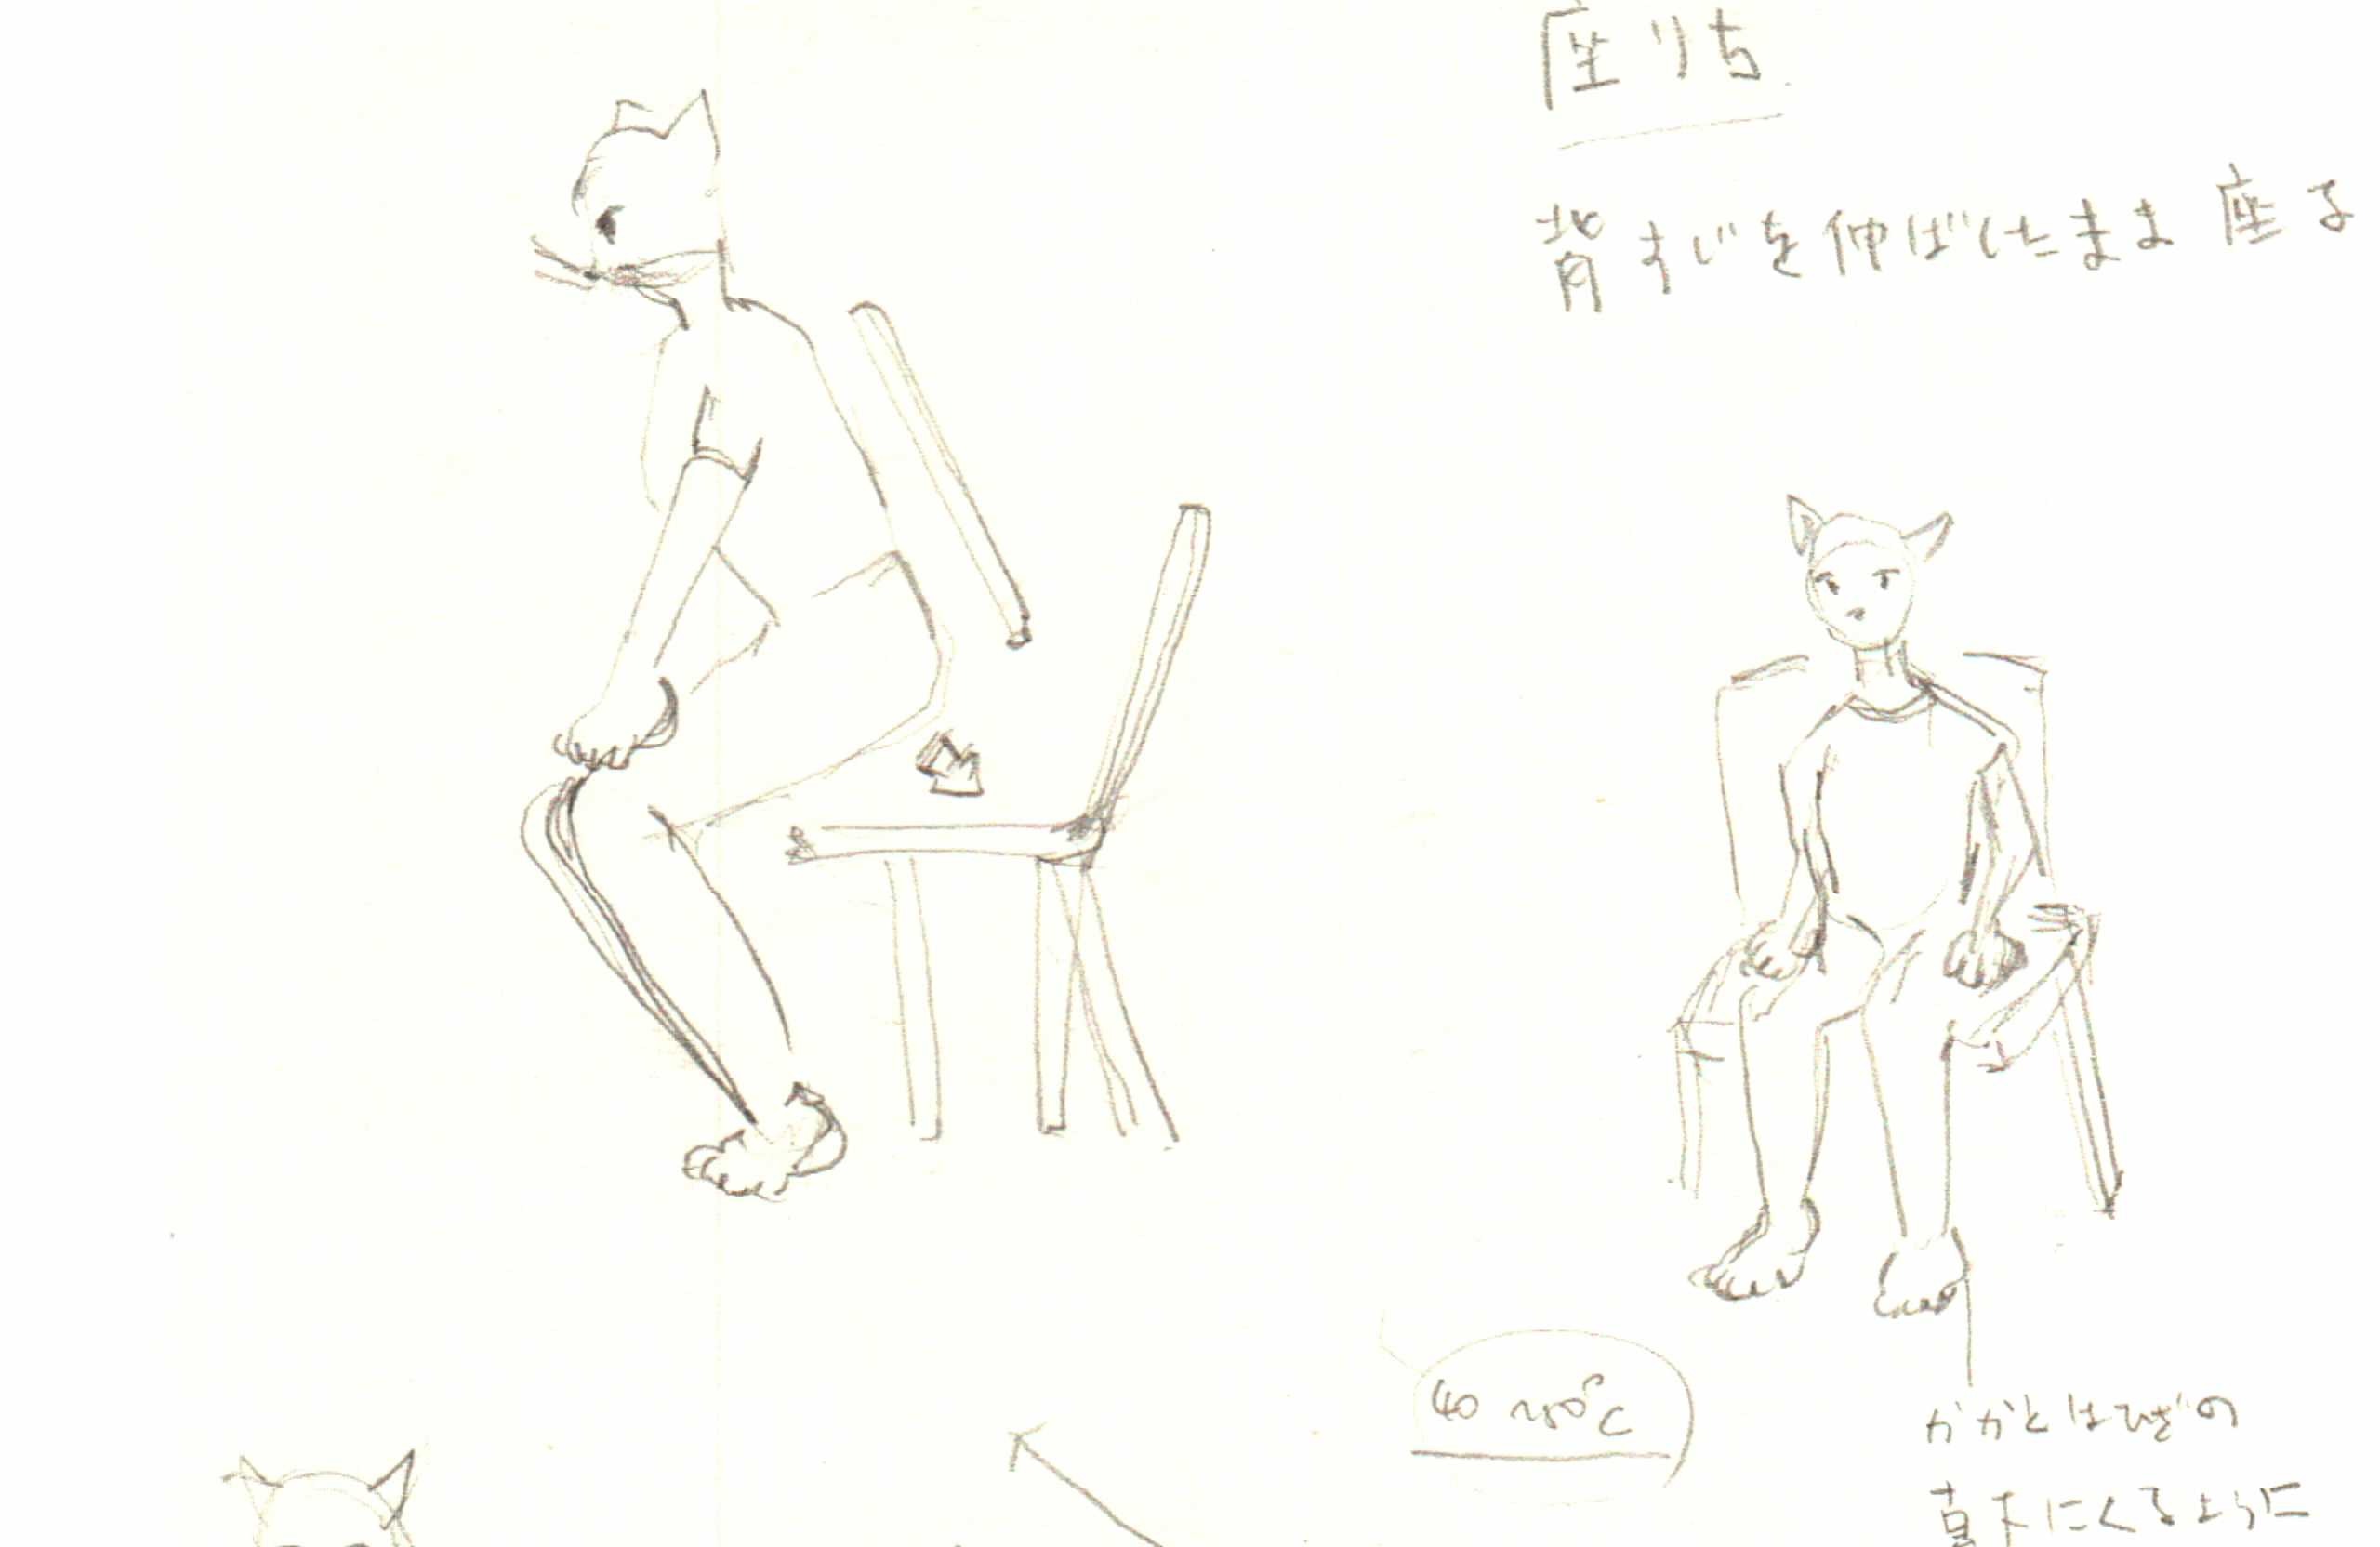 座り方
背すじを伸ばしたまま座る
40~50℃
かかとはひざの
真下にくるように